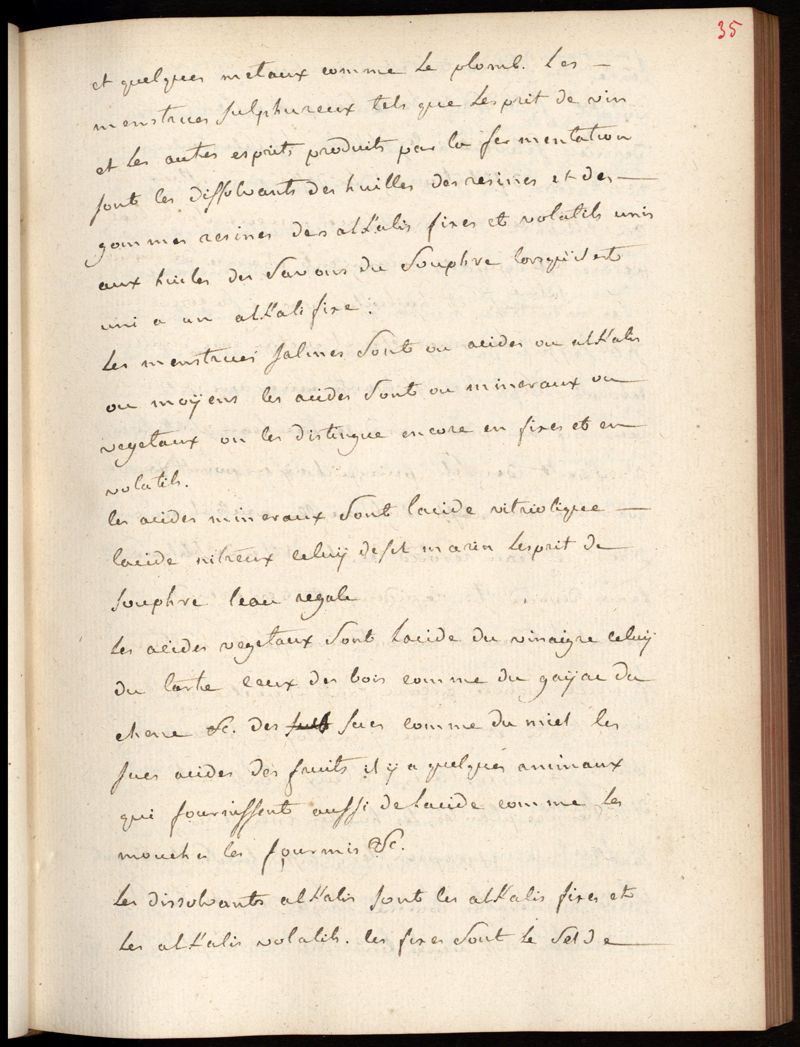 35
et quelques metaux comme le plomb. Les —
menstrues sulphureux tels que Lesprit de vin
et les autres esprits produits par la fermentation
sont les dissolvants des huilles des resines et des —
gommes resines des alkalis fixes et volatils unis
aux huiles des Savons du Souphre lorsquil est
uni a un alkali fixe.
Les menstrues salines Sont ou acides ou alkalis
ou moÿens les acides Sont ou mineraux ou
vegetaux on les distingue encore en fixes et en
volatils.
les acides mineraux Sont lacide vitriolique —
lacide nitreux celuÿ de sel marin Lesprit de
Souphre leau regale
Les acides vegetaux Sont Lacide du vinaigre celuÿ
du tartre ceux des bois comme du gaÿac du
chene &c. des sucs comme du miel les
sucs acides des fruits il ÿ a quelques animaux
qui fournissent aussi de Lacide comme les
mouches les fourmis &c.
Les dissolvants alkalis sont les alkalis fixes et
Les alkalis volatils. les fixes Sont Le Sel de —